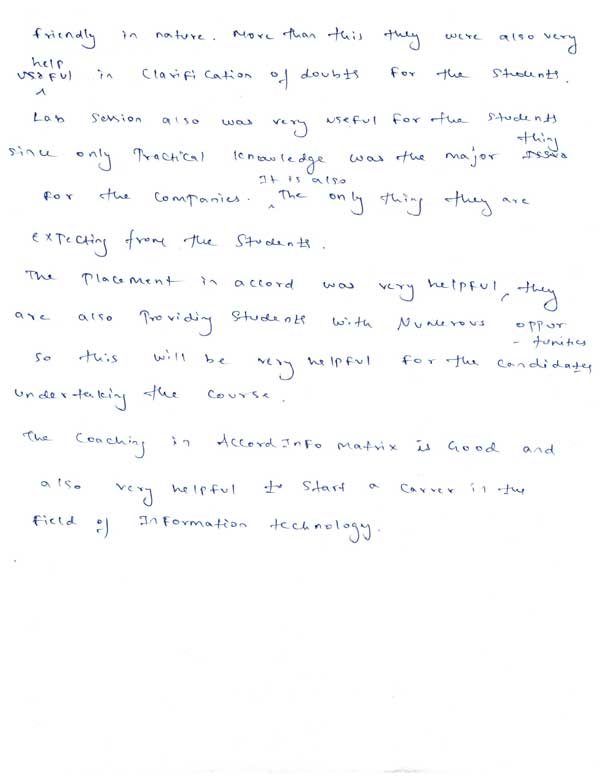 friendly in nature. More than this they were also very
help
useful in Clarification of doubts for the students.
Lab Session also was very useful for the students
thing
since only Practical knowledge was the major
It is also
for the Companies. The only thing they are
expecting from the Students.
The Placement in accord was very helpful, they
are also Providing Students with Numerous oppur
- tunities
so this will be very helpful for the candidates
undertaking the course.
The Coaching in Accord Info Matrix is Good and
also very helpful to start a carrer in the
field of Information technology.